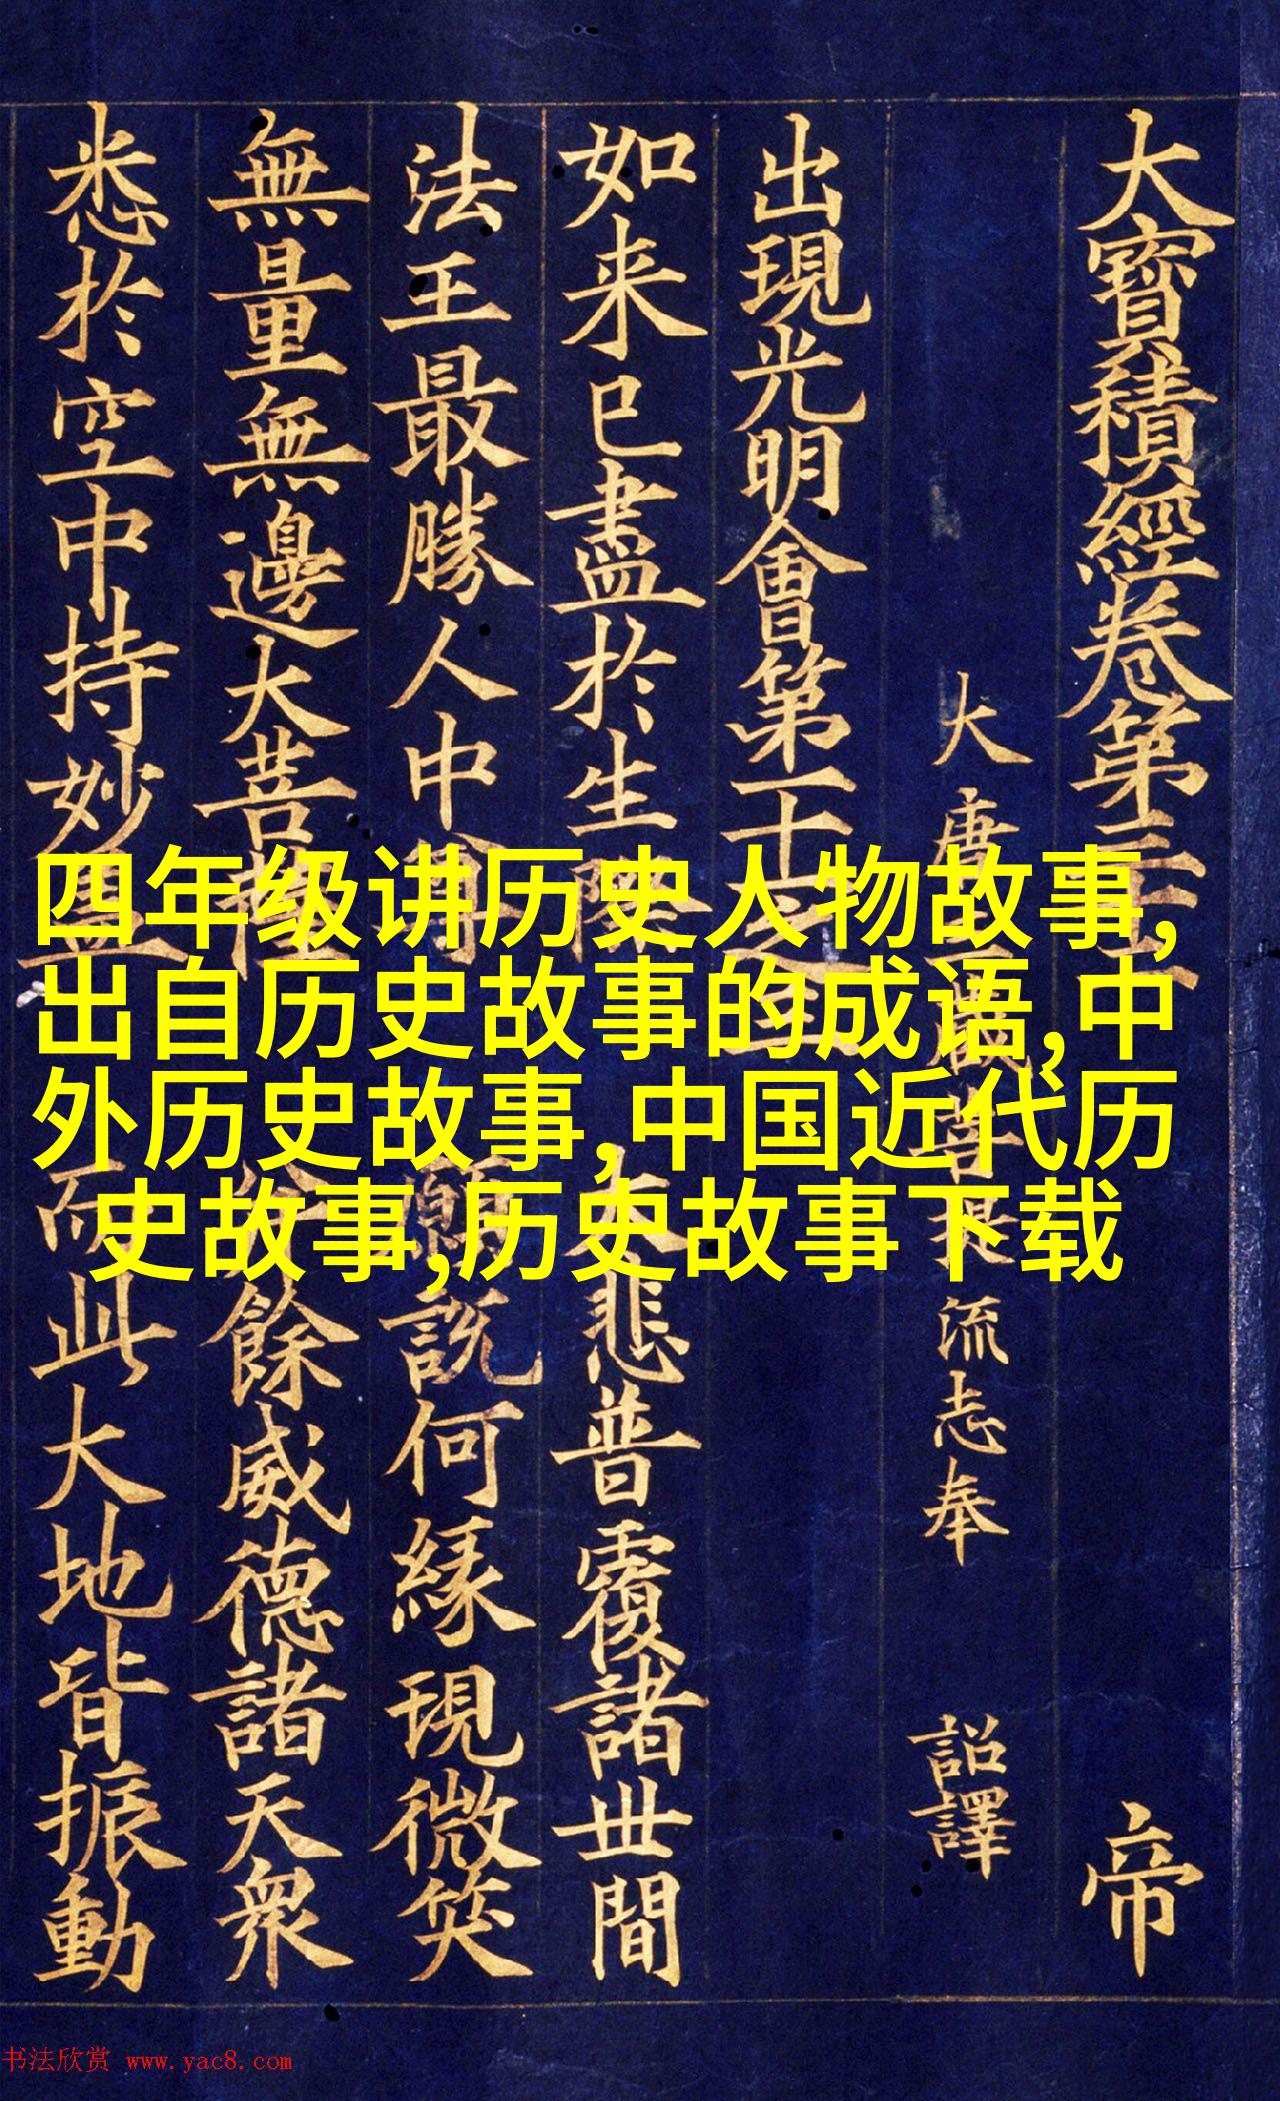 大寶積經卷第三十 帝
大唐三藏菩提流志奉 詔譯
出現光明會第十一之三
如来已盡於生際 大悲普覆諸世間
法王最勝人中尊 願說何緣現微笑
無量無邊大菩薩 餘威德諸天衆
悉於空中持妙蓋 而此大地皆振動
四年级讲历史人物故事,
出自历史故事的成语,中
外历史故事,中国近代历
史故事,历史故事下载
书法欣赏 www.yac8.com